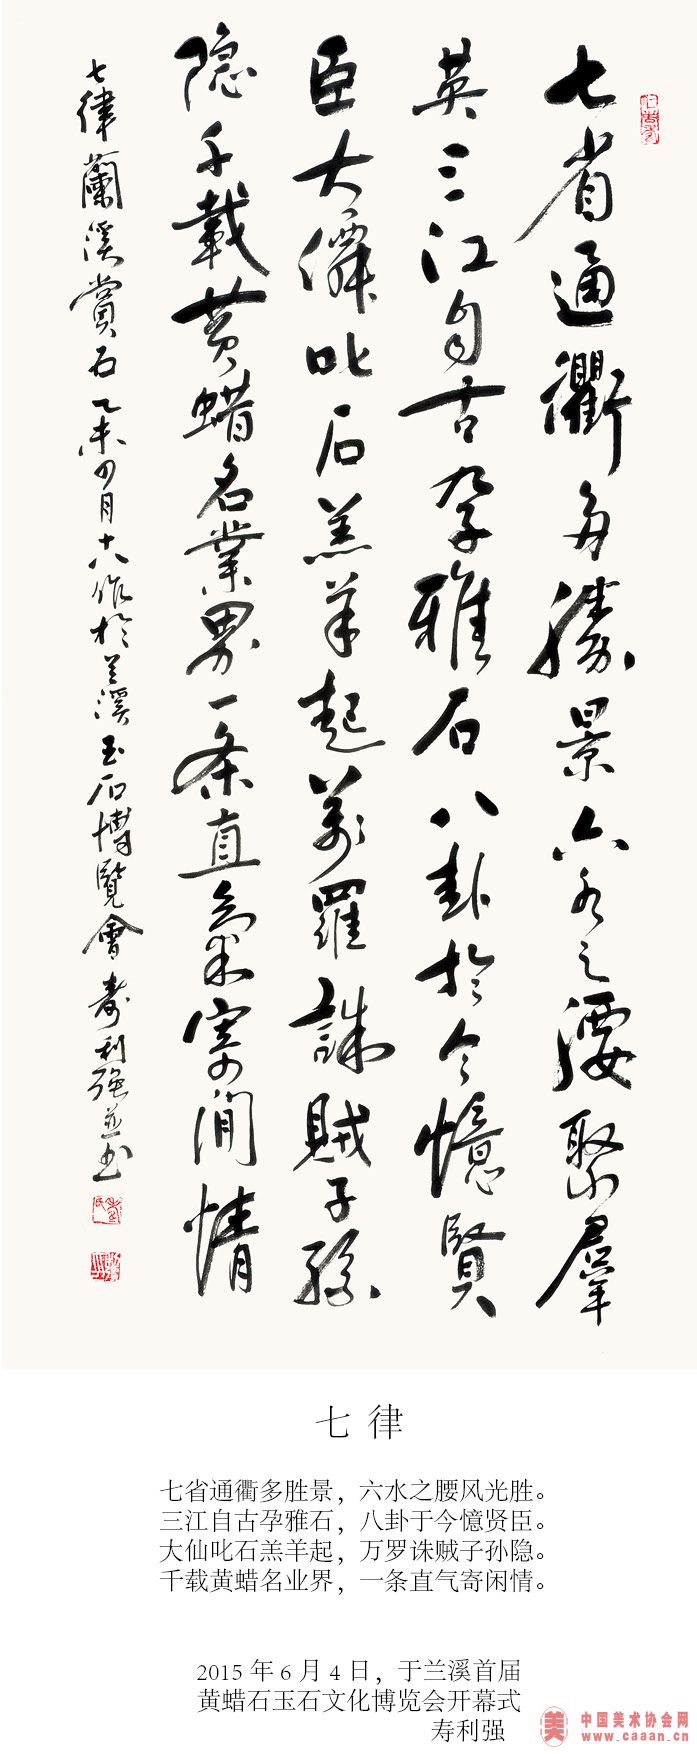 七省通衢多勝景六水之腰聚羣
英三江自古孕雅石八卦於今憶賢
臣大僊叱石羔羊起萬羅誅賊子孫
隐千載黄蜡名業界一条直氣寄闲情
七律蘭溪賞石乙未四月十八作於兰溪玉石博覽會寿利强並书
七律
七省通衢多胜景，六水之腰风光胜。
三江自古孕雅石，八卦于今憶贤臣。
大仙叱石羔羊起，万罗诛贼子孙隐。
千载黄蜡名业界，一条直气寄闲情。
2015年6月4日，于兰溪首届
黄蜡石玉石文化博览会开幕式
寿利强
美
中国美术协会网
www.caaan.cn